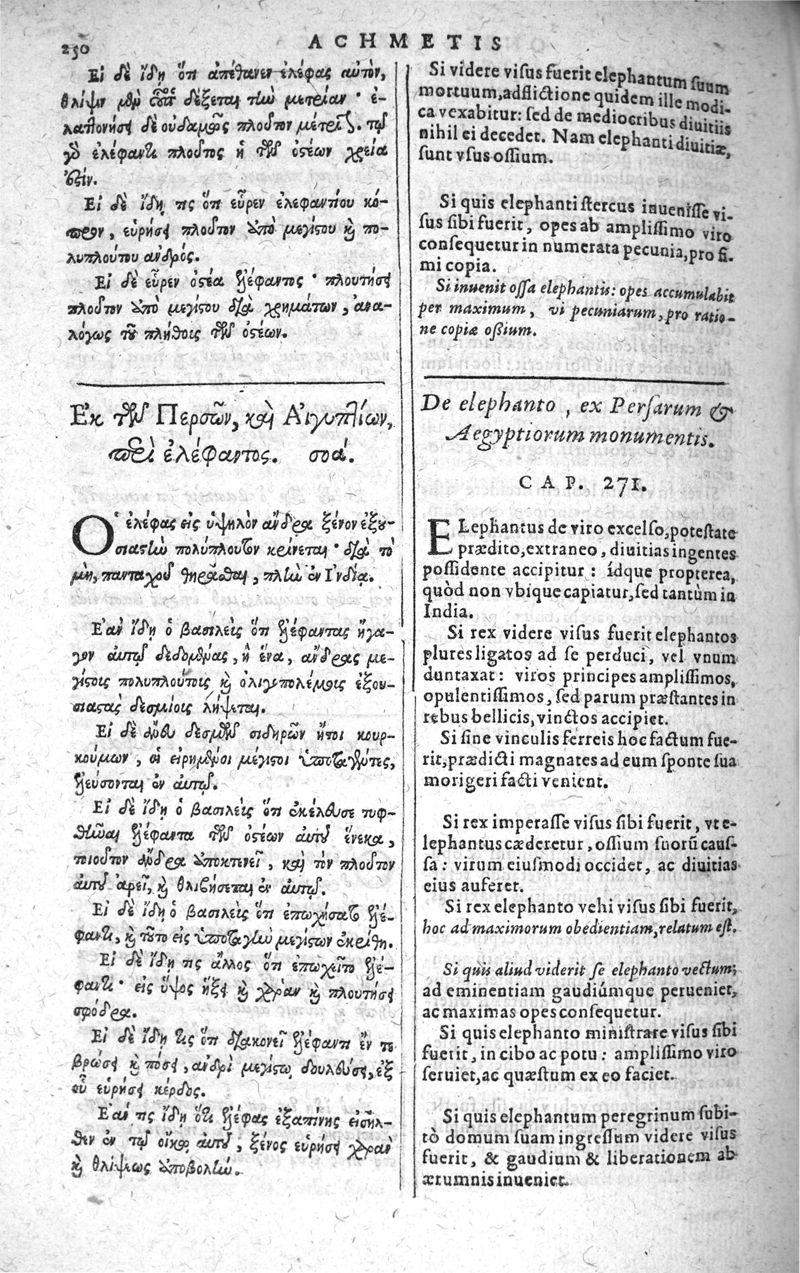 250
ACHMETIS
Εἰ δὲ ἴδῃ ὅτι ἀπέθανεν ἐλέφας αὐτοῦ,
θλίψιν μὲν δέξεται τὴν μετρίαν· ἐ-
λαττονήσει δὲ οὐδαμῶς πλοῦτον
γὸ ἐλέφαντι πλοῦτος ἡ τῶν ὀστέων χρεία
ἐστίν.
Εἰ δὲ ἴδῃ τις ὅτι εὗρεν ἐλεφαντίου κό-
προν, εὑρήσει πλοῦτον ἀπὸ μεγίστου καὶ πο-
λυπλούτου ἀνδρός.
Εἰ δὲ εὗρεν ὀστέα ἐλέφαντος· πλουτήσει
πλοῦτον ἀπὸ μεγίστου διὰ χρημάτων, ἀνα-
λόγως τοῦ πλήθους τῶν ὀστέων.
Ἐκ τῶν Περσῶν, καὶ Αἰγυπτίων,
περὶ ἐλέφαντος. σοά.
Ὁ ἐλέφας εἰς ὑψηλὸν ἄνδρα ξένον ἐξου-
σιαστὴν πολύπλουτον κρίνεται· διὰ τὸ
μὴ, πανταχοῦ θηρᾶσθαι, πλὴν ἐν Ἰνδίᾳ.
Ἐὰν ἴδῃ ὁ βασιλεὺς ὅτι ἐλέφαντας ἤγα-
γον αὐτῷ δεδεμένους, ἢ ἕνα, ἄνδρας με-
γίστους πολυπλούτους καὶ ὀλιγοπολέμους ἐξου-
σιαστὰς δεσμίους λήψεται.
Εἰ δὲ ἄνευ δεσμῶν σιδηρῶν ἤτοι κουρ-
κούμων, οἱ εἰρημένοι μέγιστοι ὑποταγέντες,
ἐλεύσονται ἐν αὐτῷ.
Εἰ δὲ ἴδῃ ὁ βασιλεὺς ὅτι ἐκέλευσε τυφ-
θῆναι ἐλέφαντα τῶν ὀστέων αὐτοῦ ἕνεκα,
τοιοῦτον ἄνδρα ἀποκτενεῖ, καὶ τὸν πλοῦτον
αὐτοῦ ἀρεῖ, καὶ θλιβήσεται ἐν αὐτῷ.
Εἰ δὲ ἴδῃ ὁ βασιλεὺς ὅτι ἐπωχήσατο ἐλέ-
φαντι, καὶ τοῦτο εἰς ὑποταγὴν μεγίστων ἐκρίθη.
Εἰ δὲ ἴδῃ τις ἄλλος ὅτι ἐπωχεῖτο ἐλέ-
φαντι· εἰς ὕψος ἥξει καὶ χαρὰν καὶ πλουτήσει
σφόδρα.
Εἰ δὲ ἴδῃ τις ὅτι διακονεῖ ἐλέφαντι ἔν τε
βρώσει καὶ πόσει, ἀνδρὶ μεγίστῳ δουλεύσει, ἐξ
οὗ εὑρήσει κέρδος.
Ἐάν τις ἴδῃ ὅτι ἐλέφας ἐξαπίνης εἰσῆλ-
θεν ἐν τῷ οἴκῳ αὐτοῦ, ξένος εὑρήσει χαρὰν
καὶ θλίψεως ἀποβολήν.
Si videre visus fuerit elephantum suum
mortuum, adflictione quidem ille modi-
ca vexabitur: sed de mediocribus diuitiis
nihil ei decedet. Nam elephanti diuitiæ,
sunt vsus ossium.
Si quis elephanti stercus inuenisse vi-
sus sibi fuerit, opes ab amplissimo viro
consequetur in numerata pecunia, pro fi-
mi copia.
Si inuenit ossa elephantis: opes accumulabit
per maximum, vi pecuniarum, pro ratio-
ne copiæ oßium.
De elephanto, ex Persarum &
Aegyptiorum monumentis.
CAP. 271.
ELephantus de viro excelso, potestate
prædito, extraneo, diuitias ingentes
possidente accipitur: ídque propterea,
quòd non vbique capiatur, sed tantùm in
India.
Si rex videre visus fuerit elephantos
plures ligatos ad se perduci, vel vnum
duntaxat: viros principes amplissimos,
opulentissimos, sed parum præstantes in
rebus bellicis, vinctos accipiet.
Si sine vinculis ferreis hoc factum fue-
rit, prædicti magnates ad eum sponte sua
morigeri facti venient.
Si rex imperasse visus sibi fuerit, vt e-
lephantus cæderetur, ossium suorũ caus-
sa: virum eiusmodi occidet, ac diuitias
eius auferet.
Si rex elephanto vehi visus sibi fuerit,
hoc ad maximorum obedientiam, relatum est.
Si quis aliud viderit se elephanto vectum;
ad eminentiam gaudiúmque perueniet,
ac maximas opes consequetur.
Si quis elephanto ministrare visus sibi
fuerit, in cibo ac potu: amplissimo viro
seruiet, ac quæstum ex eo faciet.
Si quis elephantum peregrinum subi-
tò domum suam ingressum videre visus
fuerit, & gaudium & liberationem ab
ærumnis inueniet.